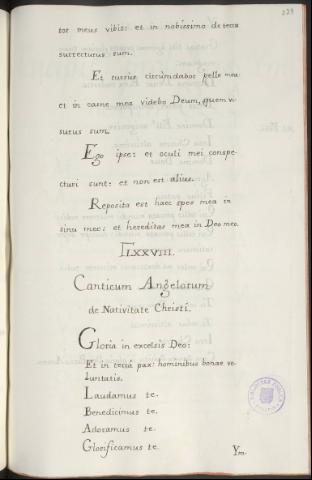 239
tor meus vibit: et in nobissimo de teca
surrecturus sum.
Et rursis circúmdabor pelle mea:
et in carne mea videbo Deum, quem vi
surus sum.
Ego ipse: et oculi mei conspe-
cturi sunt: et non est alius.
Reposita est haec spes mea in
sinu meo: et hereditas mea in Deo meo.
LXXVIII.
Canticum Angelorum
de Nativitate Christi.
Gloria in excelsis Deo:
Et in terra pax: hominibus bonae vo-
luntatis.
Laudamus te.
Benedicimus te.
Adoramus te.
Glorificamus te.
Ym.